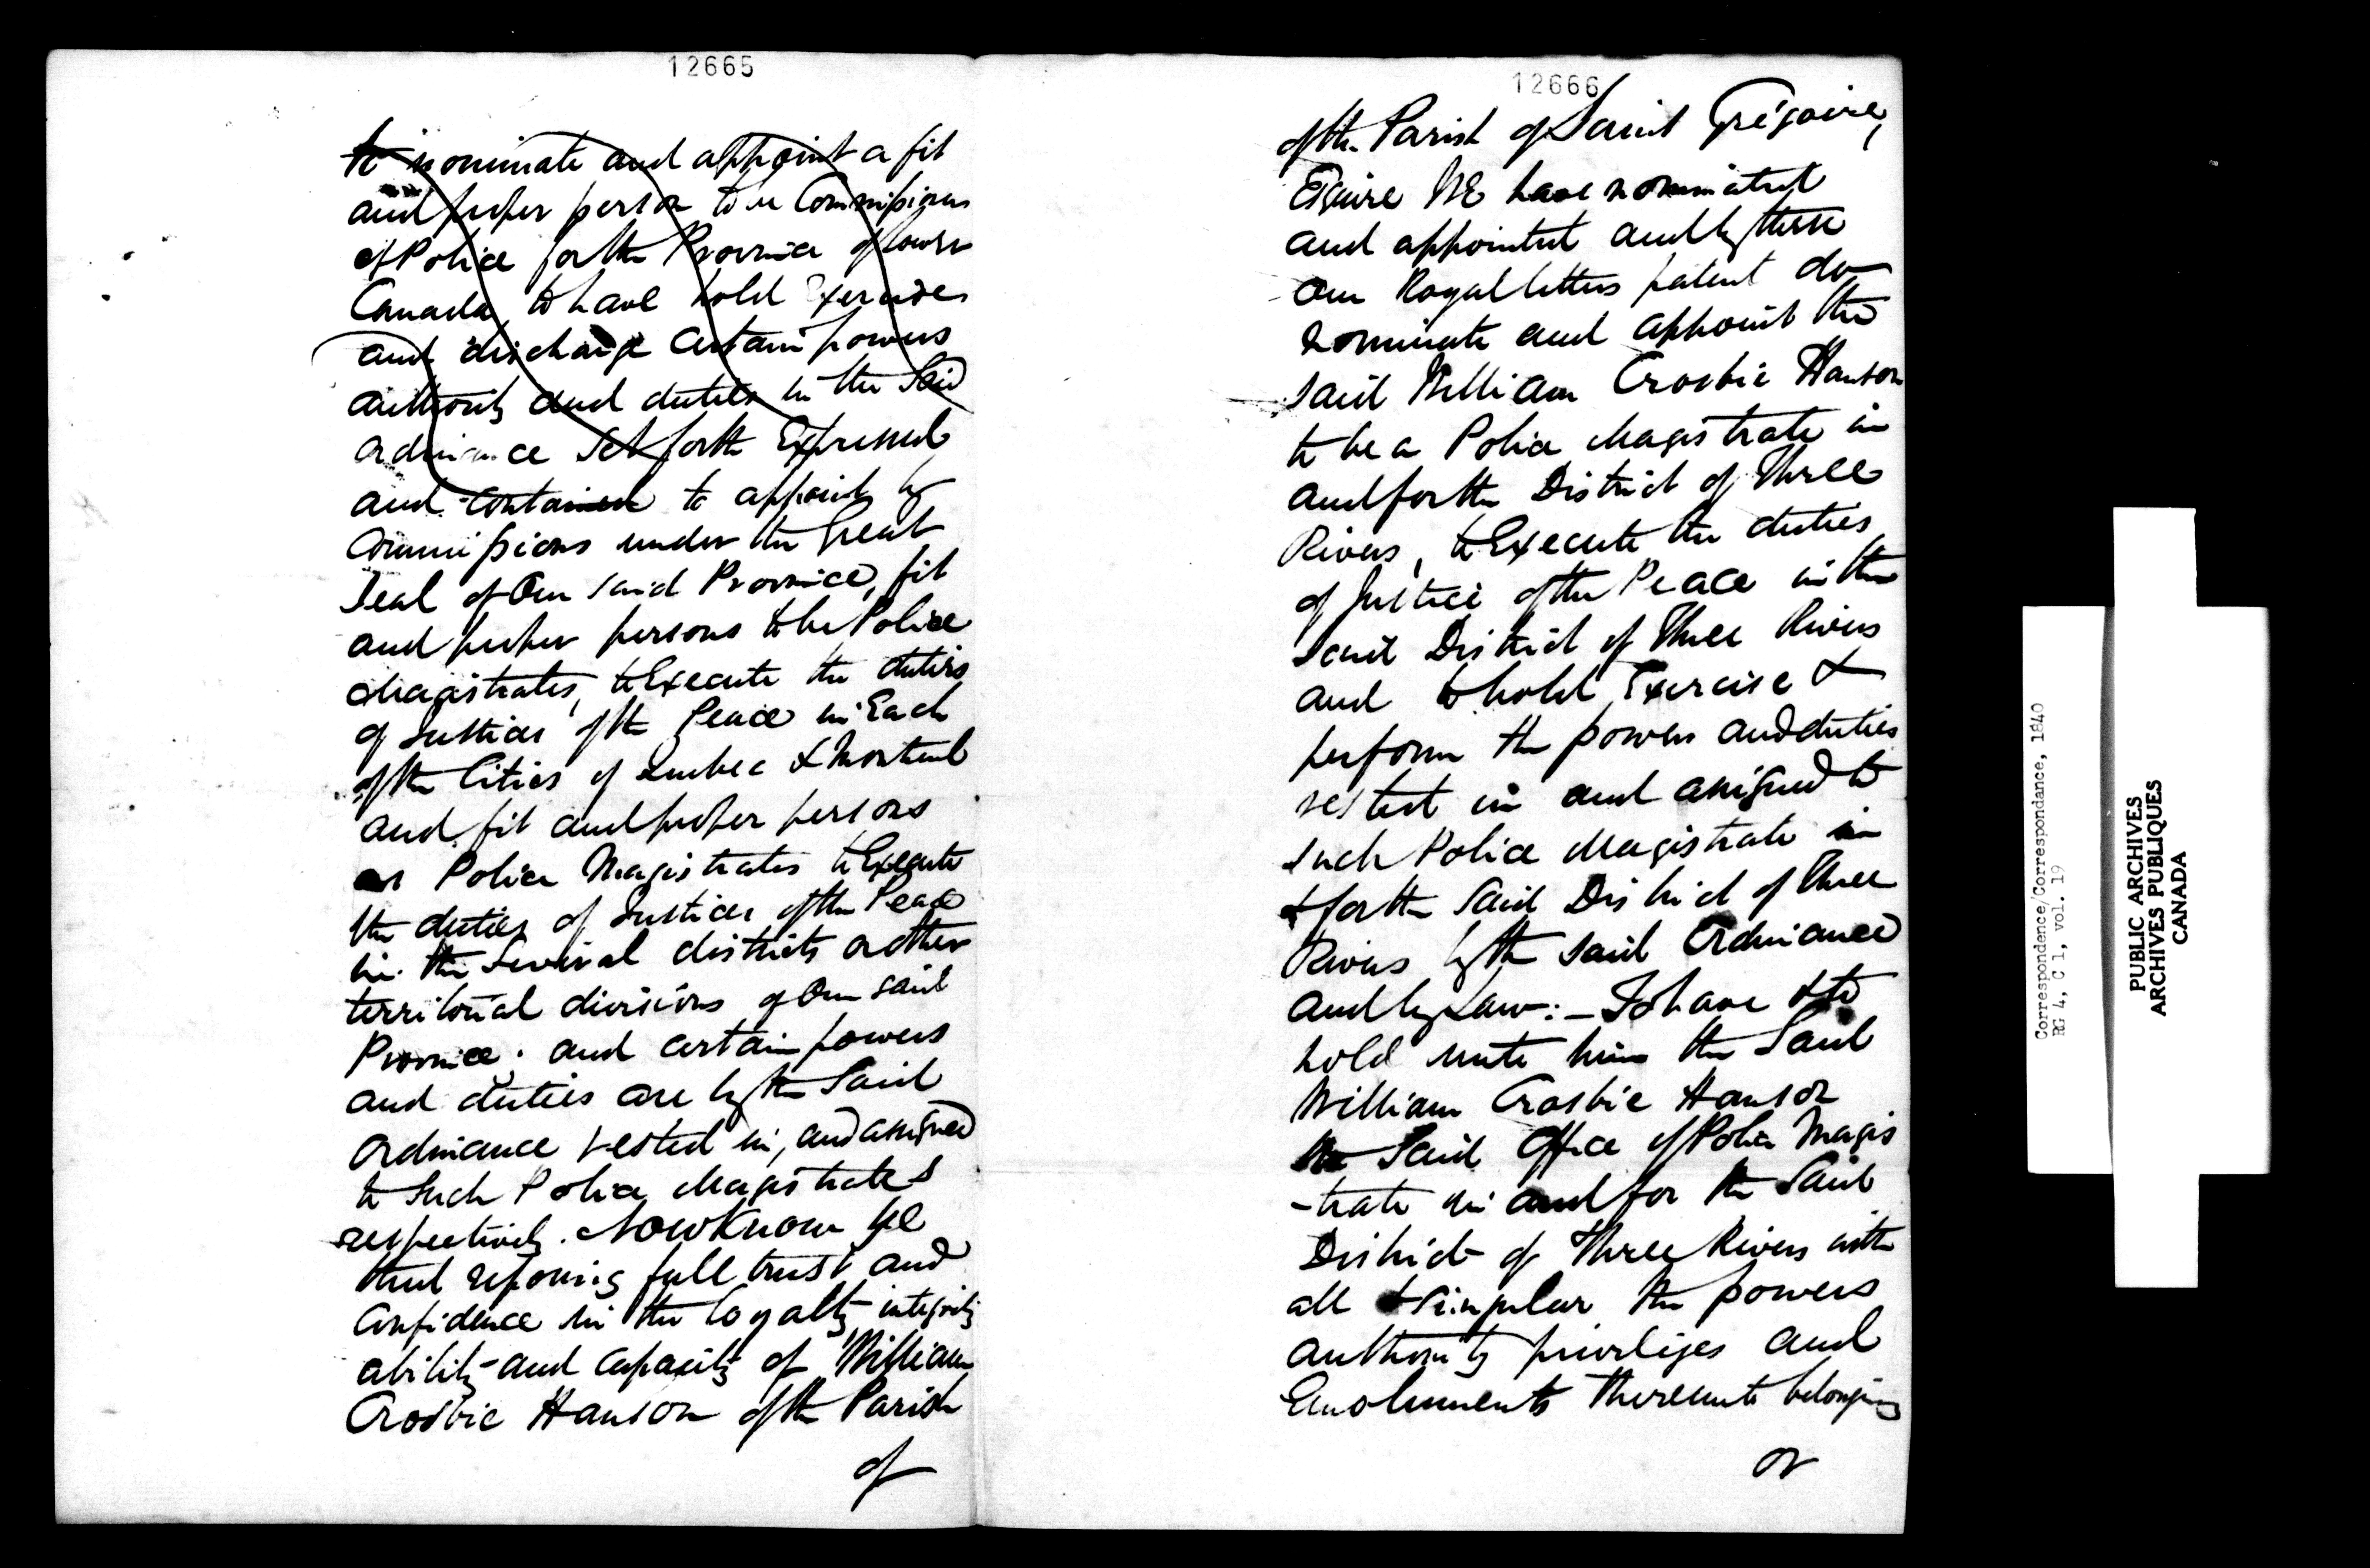 12665
to nominate and appoint a fit
and proper person to be Commissioner
of Police for the Province of Lower
Canada, to have hold Exercise
and discharge certain powers
authority and duties in the Said
ordinance Set forth Expressed
and contained to appoint by
Commissions under the Great
Seal of Our said Province, fit
and proper persons to be Police
Magistrates, to Execute the duties
of Justices of the Peace in Each
of the Cities of Quebec & Montreal
and fit and proper persons
as Police Magistrates to Execute
the duties of Justices of the Peace
in the Several districts or other
territorial divisions of Our said
Province; and certain powers
and duties are by the Said
Ordinance vested in, and assigned
to Such Police Magistrates
respectively. Now Know Ye
that reposing full trust and
Confidence in the loyalty integrity
ability and capacity of William
Crosbie Hanson of the Parish
of
12666
of the Parish of Saint Grégoire,
Esquire WE have nominated
and appointed and by these
Our Royal letters patent do
nominate and appoint the
said William Crosbie Hanson
to be a Police Magistrate in
and for the District of Three
Rivers, to Execute the duties
of Justice of the Peace in the
said District of Three Rivers
and to hold Exercise &
perform the powers and duties
vested in and assigned to
such Police Magistrate in
& for the Said District of Three
Rivers by the said Ordinance
and by Law:- To have & to
hold unto him the Said
William Crosbie Hanson
the Said Office of Police Magis
-trate in and for the Said
District of Three Rivers with
all & singular the powers
authority priviliges and
Emoluments thereunto belonging
or
Correspondence/Correspondance, 1840
RG 4, C 1, vol. 19
PUBLIC ARCHIVES
ARCHIVES PUBLIQUES
CANADA